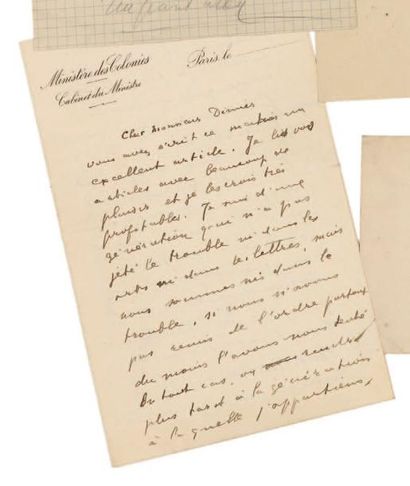 Ministère des Colonies
Cabinet du Ministre
Paris, le
Cher Monsieur
vous avez écrit ce matin un
excellent article. Je lis vos
articles avec beaucoup de
plaisir et je les crois très
profitables. Je suis d'une
génération qui n'a pas
jeté le trouble ni dans les
arts ni dans les lettres, mais
nous sommes nés dans le
trouble, si nous n'avons
pas remis de l'ordre partout
du moins l'avons nous tenté
En tout cas, on rendra
plus tard à la génération
à laquelle j'appartiens